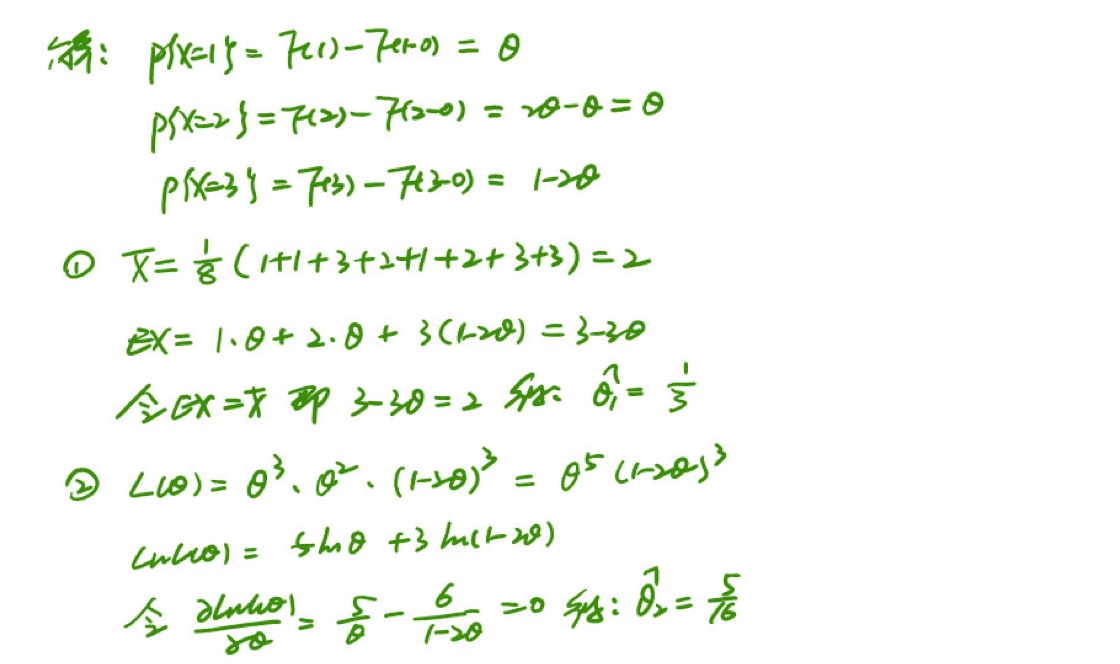 解: P{X=1} = F(1) - F(1-0) = θ
P{X=2} = F(2) - F(2-0) = 2θ - θ = θ
P{X=3} = F(3) - F(3-0) = 1-2θ
① X̄ = 1/8 (1+1+3+2+1+2+3+3) = 2
EX = 1·θ + 2·θ + 3(1-2θ) = 3-3θ
令 EX = X̄ 即 3-3θ = 2 解得: θ̂₁ = 1/3
② L(θ) = θ³·θ²·(1-2θ)³ = θ⁵(1-2θ)³
lnL(θ) = 5lnθ + 3ln(1-2θ)
令 ∂lnL(θ)/∂θ = 5/θ - 6/(1-2θ) = 0 解得: θ̂₂ = 5/16